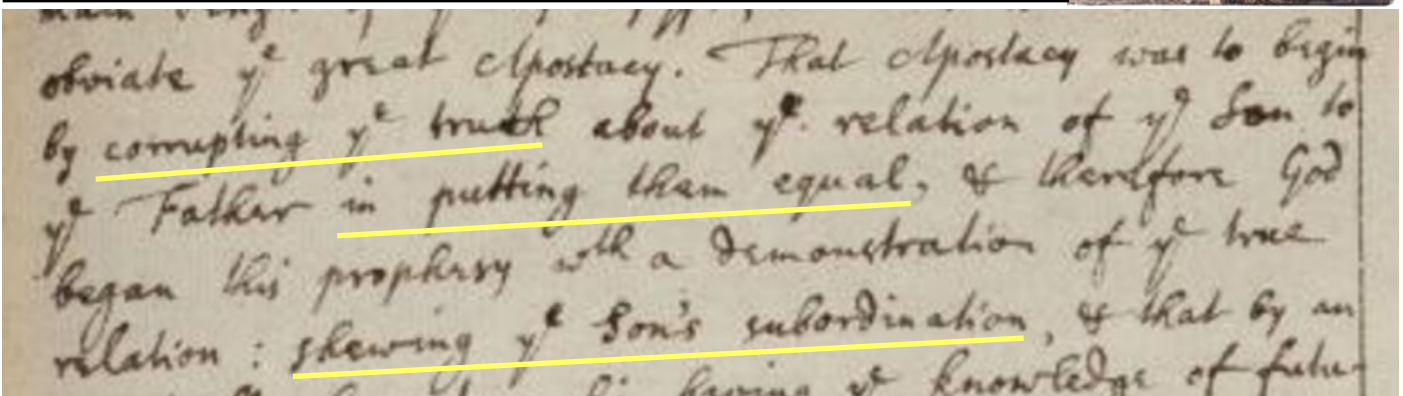 obviate yᵉ great Apostacy. That Apostacy was to begin
by corrupting yᵉ truth about yᵉ relation of yᵉ Son to
yᵉ Father in putting them equal, & therefore God
began this prophesy wᵗʰ a demonstration of yᵉ true
relation : shewing yᵉ Son's subordination, & that by an
having yᵉ knowledge of futu-